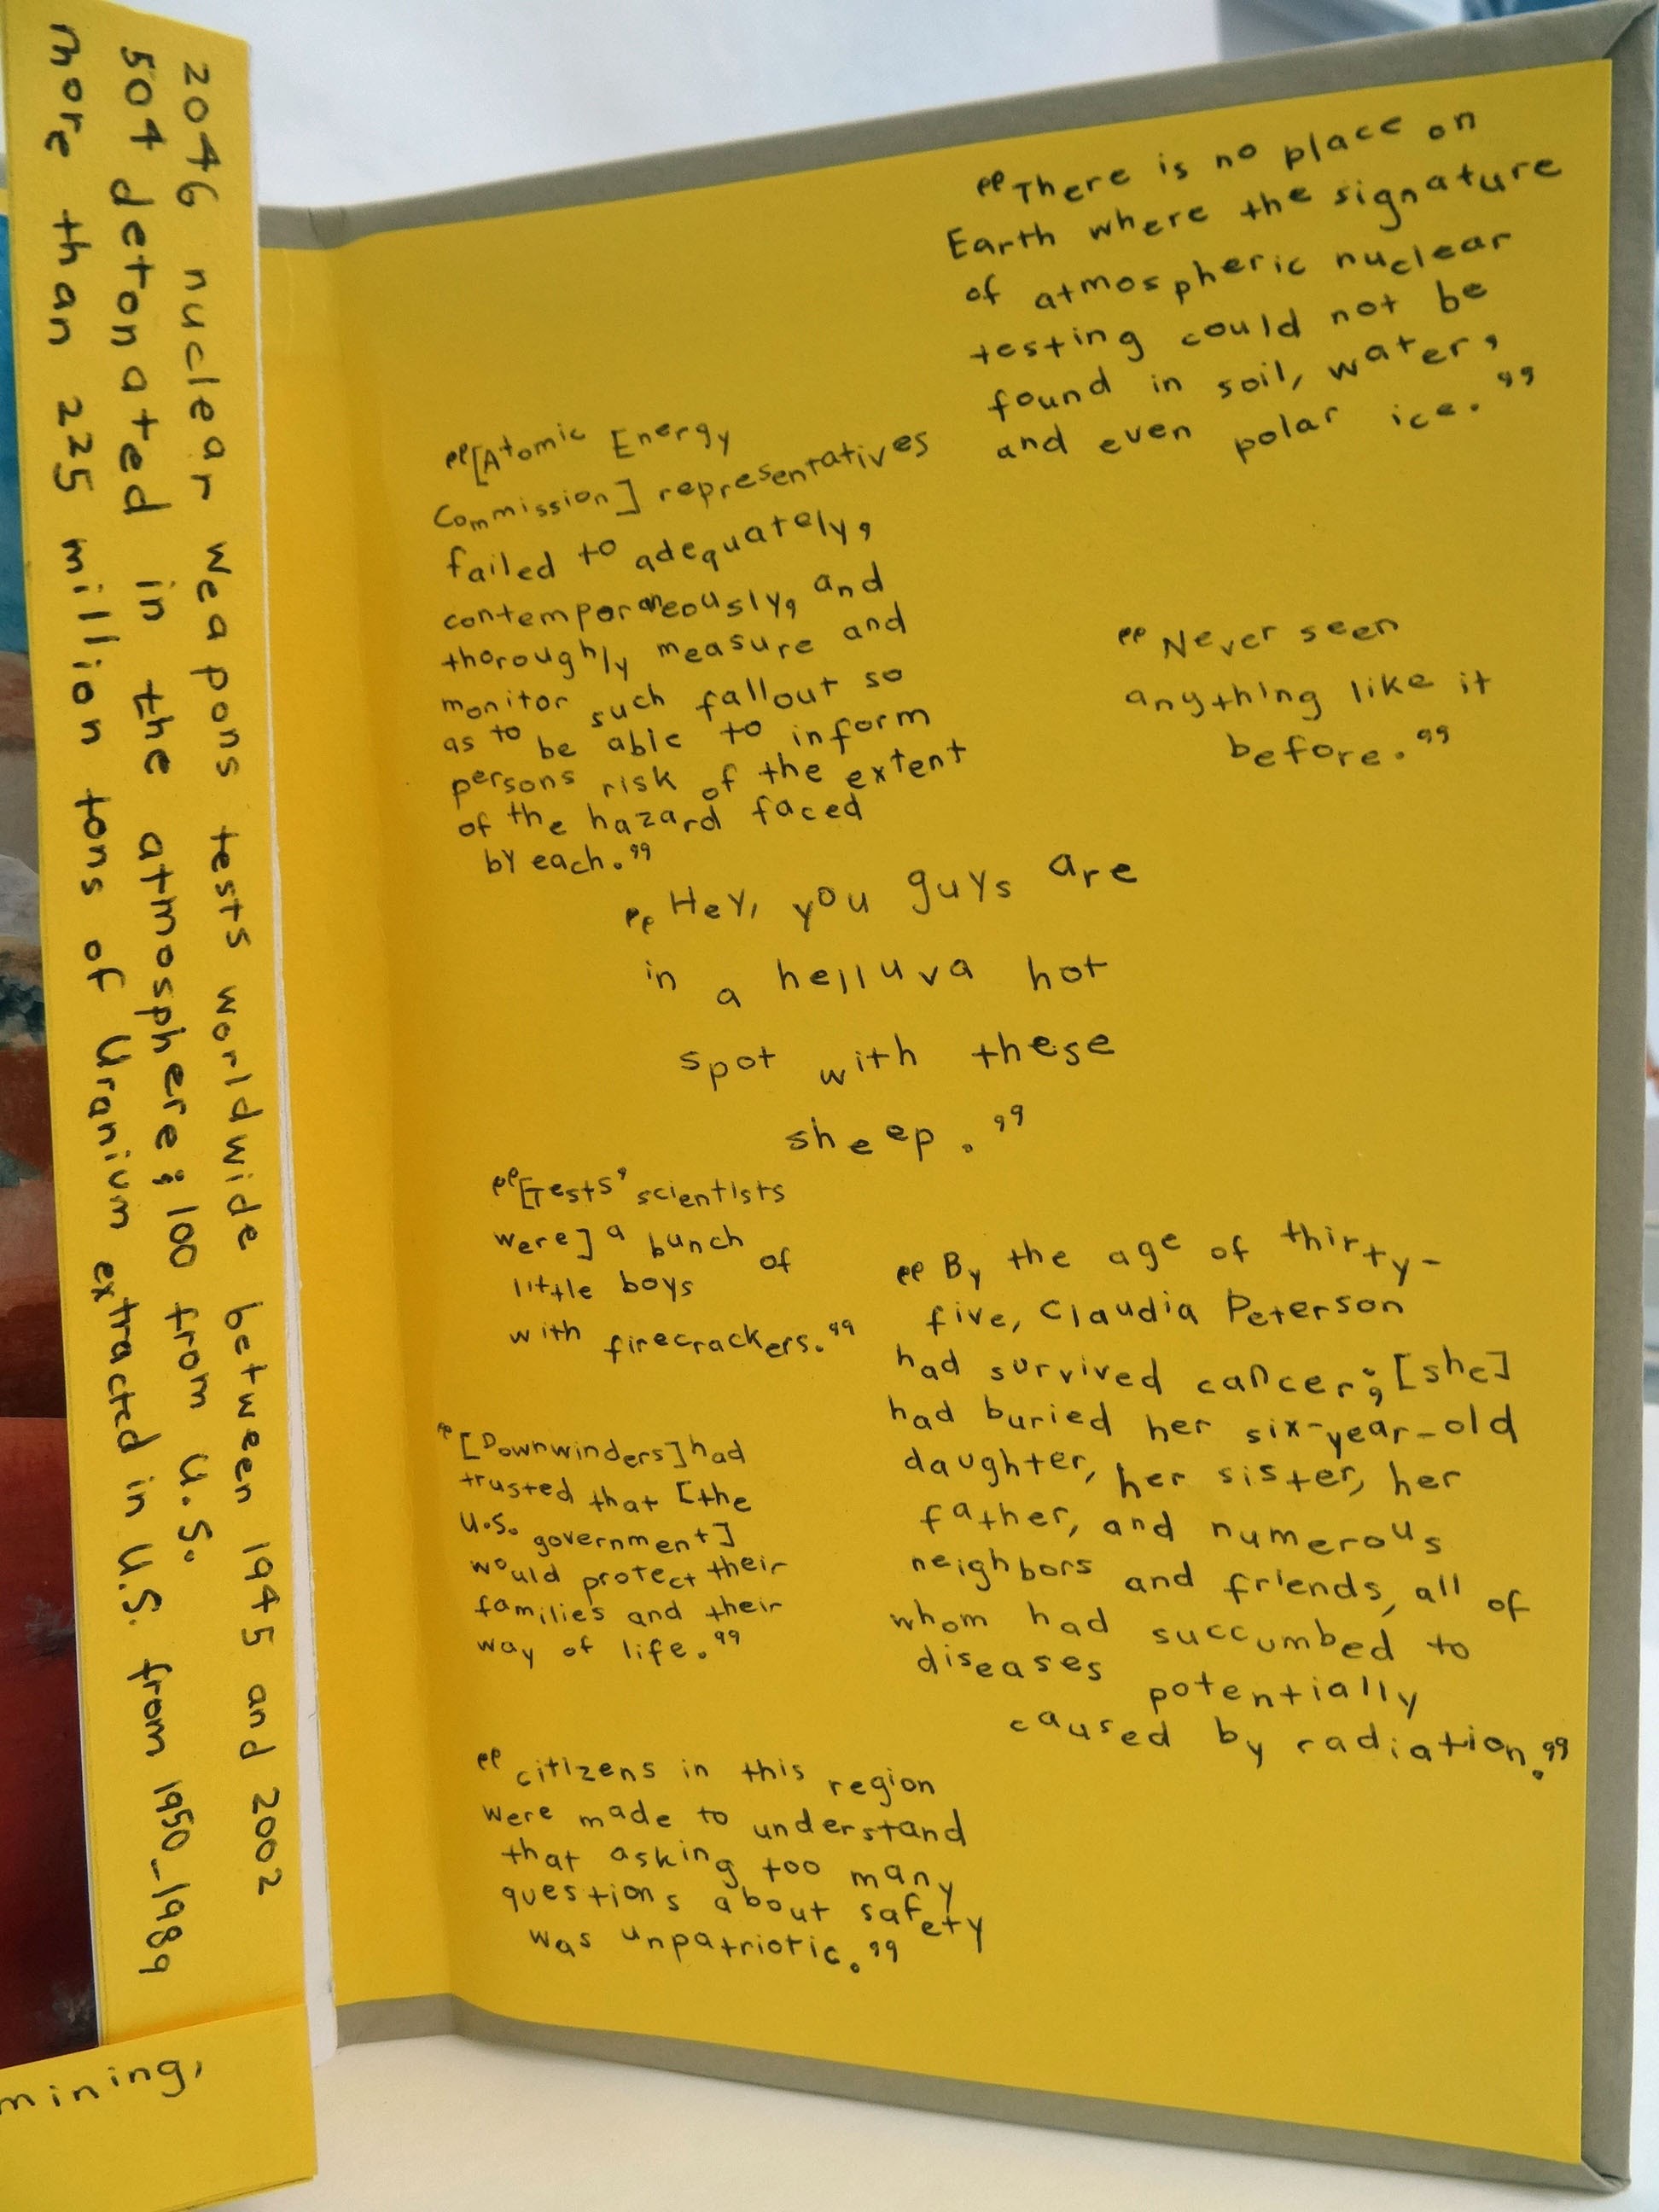 2046 nuclear weapons tests worldwide between 1945 and 2002
504 detonated in the atmosphere; 100 from U.S.
more than 225 million tons of Uranium extracted in U.S. from 1950-1989
mining,
“There is no place on
Earth where the signature
of atmospheric nuclear
testing could not be
found in soil, water,
and even polar ice.”
“[Atomic Energy
Commission] representatives
failed to adequately,
contemporaneously, and
thoroughly measure and
monitor such fallout so
as to be able to inform
persons risk of the extent
of the hazard faced
by each.”
“Never seen
anything like it
before.”
“Hey, you guys are
in a helluva hot
spot with these
sheep.”
“[Tests’ scientists
were] a bunch of
little boys
with firecrackers.”
“By the age of thirty-
five, Claudia Peterson
had survived cancer; [she]
had buried her six-year-old
daughter, her sister, her
father, and numerous
neighbors and friends, all of
whom had succumbed to
diseases potentially
caused by radiation.”
“[Downwinders] had
trusted that [the
U.S. government]
would protect their
families and their
way of life.”
“citizens in this region
were made to understand
that asking too many
questions about safety
was unpatriotic.”